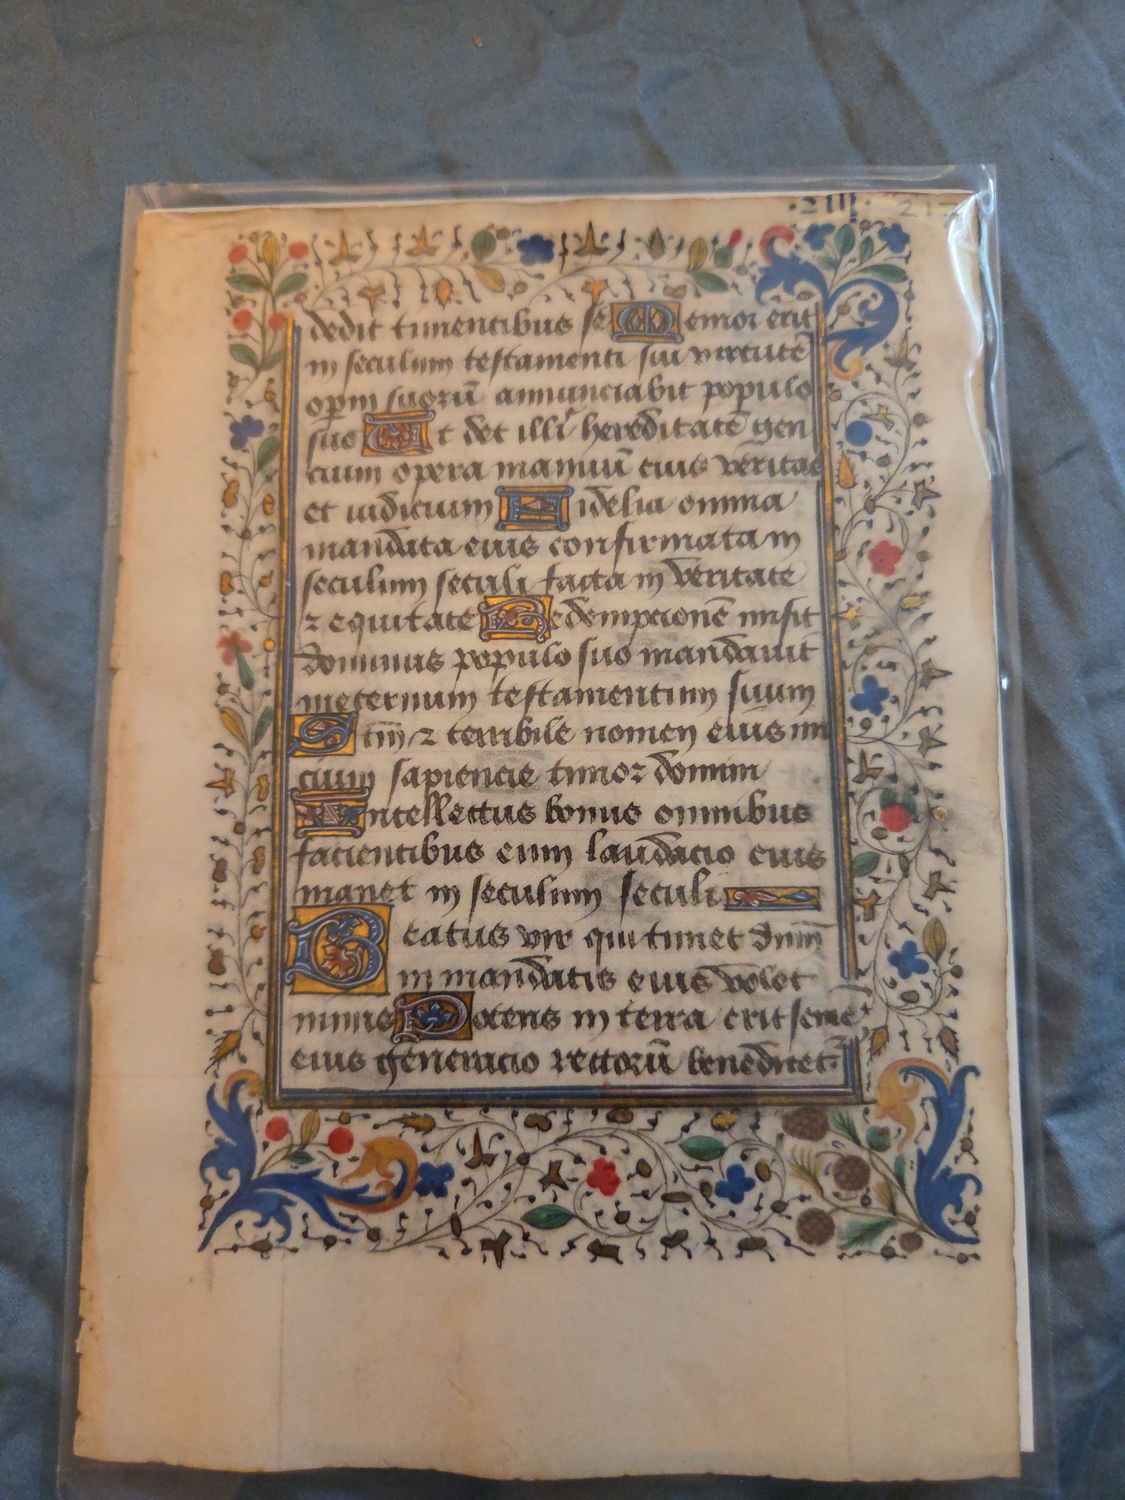 ·2111· 217
dedit timentibus se Memor erit
in seculum testamenti sui virtutē
opm suorū annunciabit populo
suo Ut det illis hereditatē gen
cium opera manuū eius veritas
et iudicium Fidelia omnia
mandata eius confirmata in
seculum seculi facta in veritate
⁊ equitate Redempcionē misit
dominus populo suo mandavit
ineternum testamentum suum
Sctm̄ ⁊ terribile nomen eius ini
cium sapiencie timor domini
Intellectus bonus omnibus
facientibus eum laudacio eius
manet in seculum seculi
Beatus vir qui timet dnm̄
in mandatis eius volet
nimis Potens in terra erit semē
eius generacio rectorū benedicet᷑